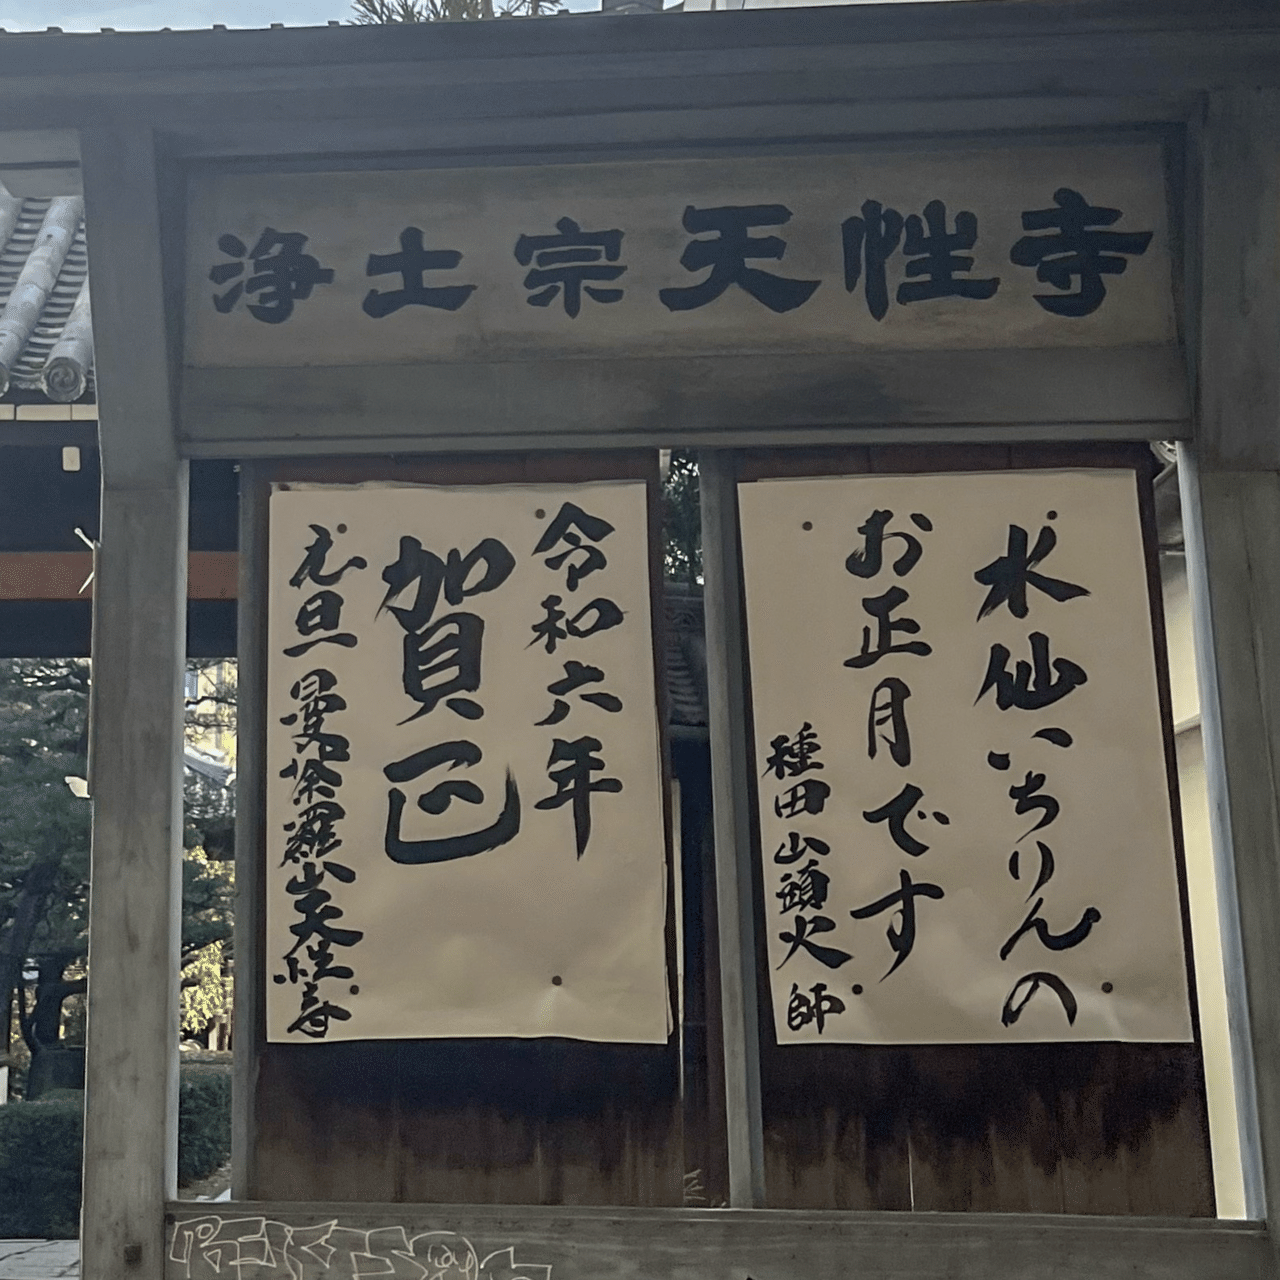 浄土宗天性寺
水仙いちりんの
お正月です
種田山頭火師
令和六年
賀正
元旦 曼荼羅山天性寺